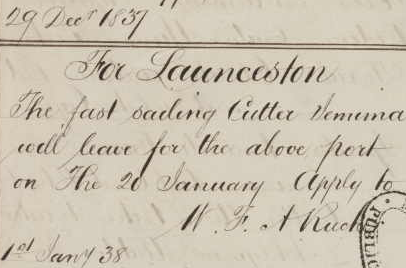 29 Decr 1837
For Launceston
The fast sailing Cutter Jemima
will leave for the above port
on The 20 January Apply to
W. F. A Rucker
1st Jany 38
PUBLIC